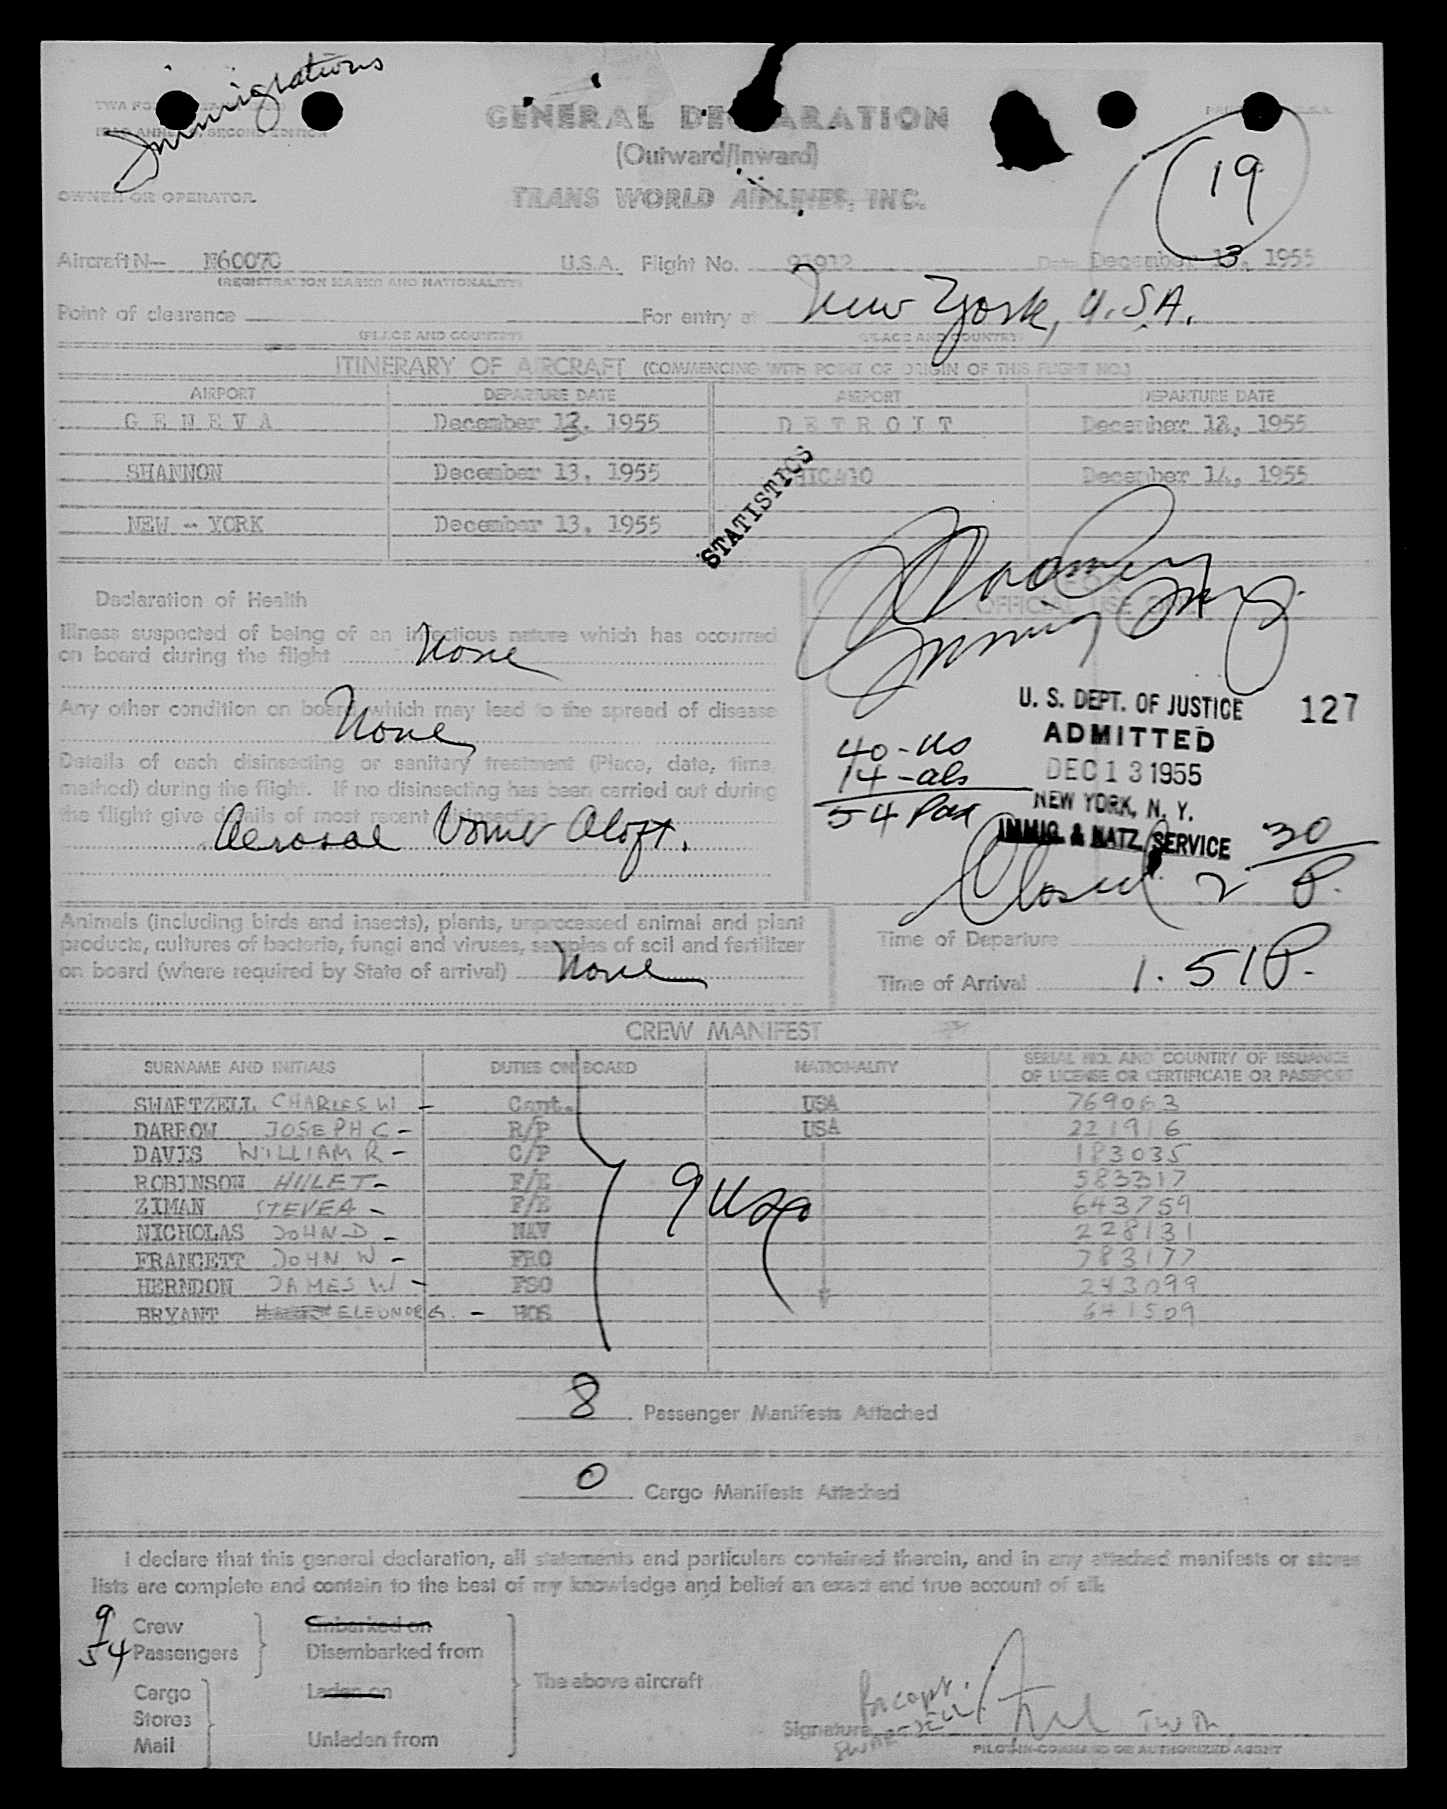 Immigrations
GENERAL DECLARATION
(Outward/Inward)
19
OWNER OR OPERATOR
TRANS WORLD AIRLINES, INC.
Aircraft N— N6007C U.S.A. Flight No. 91912 December 13, 1955
(REGISTRATION MARKS AND NATIONALITY)
Point of clearance For entry at New York, U.S.A.
(PLACE AND COUNTRY) (PLACE AND COUNTRY)
ITINERARY OF AIRCRAFT (COMMENCING WITH POINT OF ORIGIN OF THIS FLIGHT NO.)
AIRPORT DEPARTURE DATE AIRPORT DEPARTURE DATE
GENEVA December 13, 1955 DETROIT December 13, 1955
SHANNON December 13, 1955 CHICAGO December 14, 1955
NEW - YORK December 13, 1955
STATISTICS
Declaration of Health
OFFICIAL USE ONLY
Illness suspected of being of an infectious nature which has occurred
on board during the flight None
Any other condition on board which may lead to the spread of disease
None
Details of each disinsecting or sanitary treatment (Place, date, time,
method) during the flight. If no disinsecting has been carried out during
the flight give details of most recent disinsecting
Aerosol Bomb Aloft.
U. S. DEPT. OF JUSTICE 127
ADMITTED
DEC 13 1955
NEW YORK, N. Y.
IMMIG. & NATZ. SERVICE
40 - US
14 - als
54 Pax
Closed 2 30/P.
Animals (including birds and insects), plants, unprocessed animal and plant
products, cultures of bacteria, fungi and viruses, samples of soil and fertilizer
on board (where required by State of arrival) None
Time of Departure
Time of Arrival 1.51P.
CREW MANIFEST
SURNAME AND INITIALS DUTIES ON BOARD NATIONALITY SERIAL NO. AND COUNTRY OF ISSUANCE
OF LICENSE OR CERTIFICATE OR PASSPORT
SWARTZELL CHARLES W - Capt. USA 769063
DARROW JOSEPH C - R/P USA 221916
DAVIS WILLIAM R - C/P 183035
ROBINSON HULET - F/E 583317
ZIMAN STEVE A - F/E 643759
NICHOLAS JOHN D - NAV 228131
FRANCETT JOHN W - FRO 783177
HERNDON JAMES W - FSO 243099
BRYANT ELEONOR G. - HOS 641509
9 USA
8 Passenger Manifests Attached
0 Cargo Manifests Attached
I declare that this general declaration, all statements and particulars contained therein, and in any attached manifests or stores
lists are complete and contain to the best of my knowledge and belief an exact and true account of all:
9 Crew Embarked on
54 Passengers Disembarked from
The above aircraft
Cargo Laden on
Stores
Mail Unladen from
Signature TWA
PILOT-IN-COMMAND OR AUTHORIZED AGENT